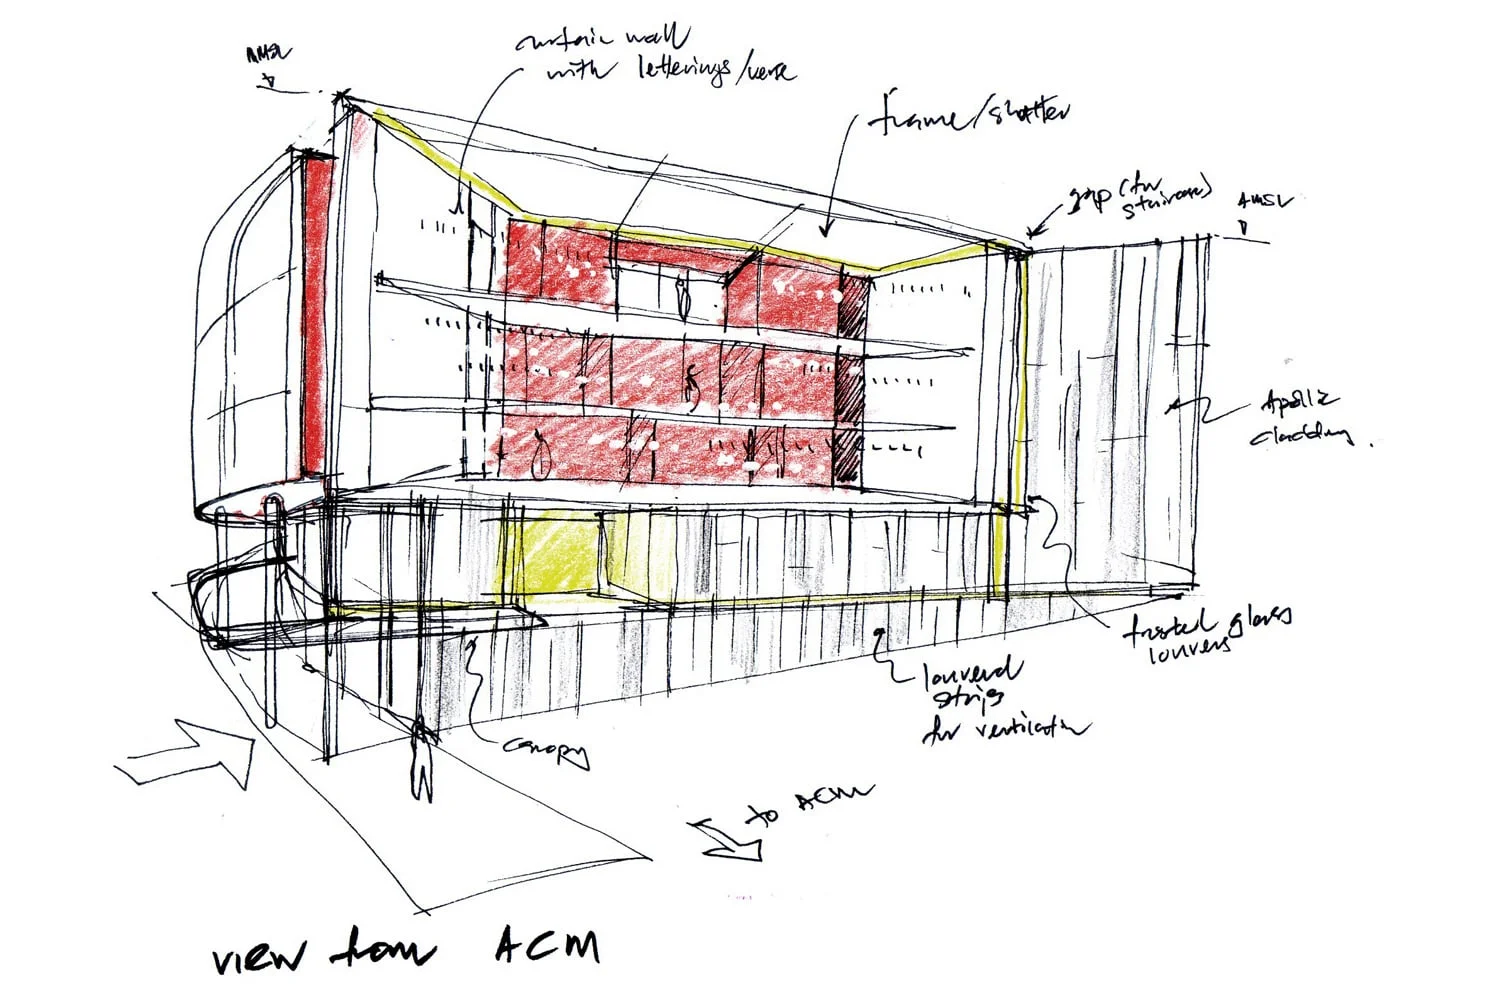 AMSL
curtain wall
with letterings/verse
frame/shutter
gap (for
staircase)
AMSL
cladding
frosted glass
louvers
louvered
strips
for ventilation
canopy
to ACM
view from ACM